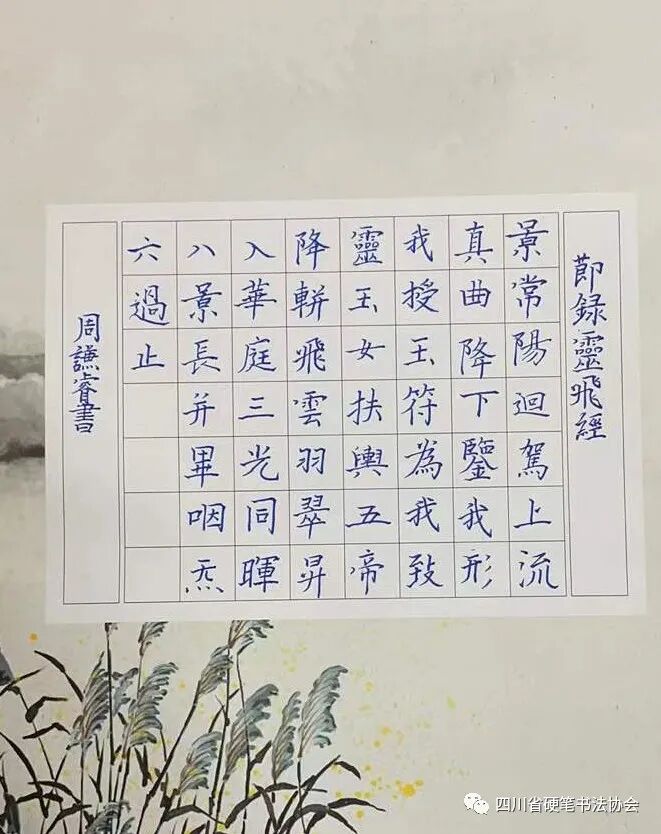 節録靈飛經
景常陽迴駕上流
真曲降下鑒我形
我授玉符為我致
靈玉女扶輿五帝
降軿飛雲羽翠昇
入華庭三光同暉
八景長并畢咽炁
六過止
周謙睿書
四川省硬笔书法协会